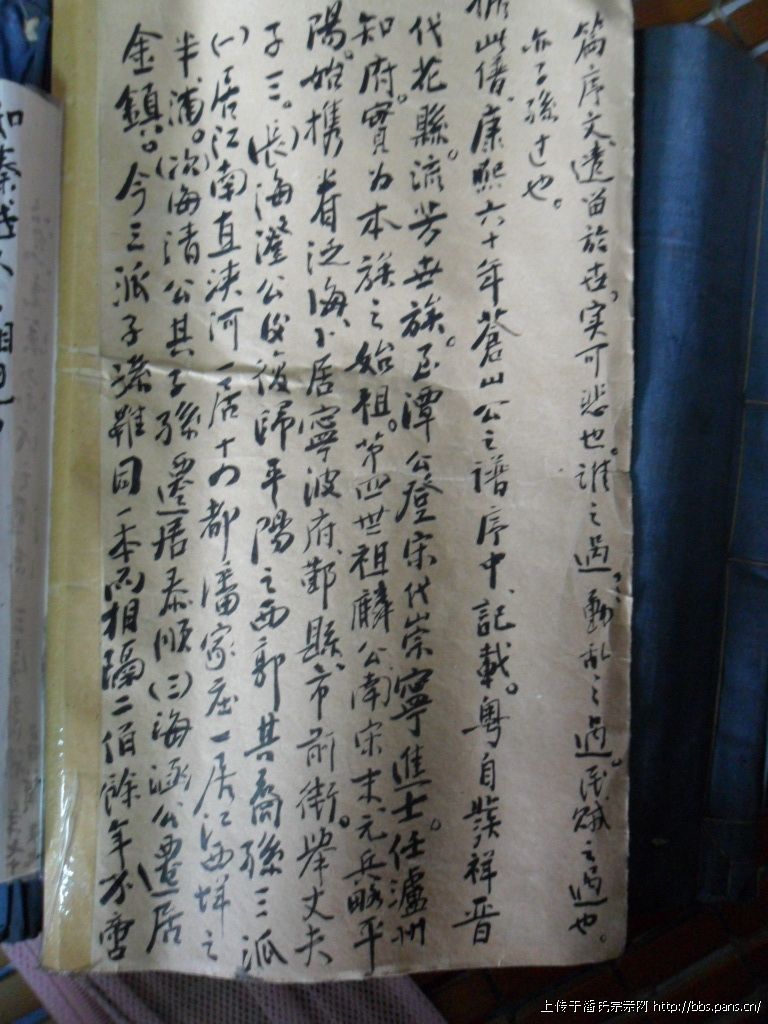 篇序文遗笛於世。实可悲也。谁之过。动乱之过。民贼之过也。
亦子孙过也。
据此僐、康熙六十年蒼山公之谱序中、記載。粤自發祥晋
代花縣。流芳世族。正潭公登宋代崇寧進士。任瀘州
知府。實为本族之始祖。第四世祖麟公南宋末元兵略平
陽。始携眷泛海、卜居寧波府、鄞縣、市前街。举丈夫
子三。長海澄公後復歸平陽之西郭其裔孫三派
㈠居江南直浃河一居十四都潘家庄一居江西垟之
半浦。㈡次海清公其子孫遷居泰順㈢海涵公遷居
金鎮。今三派子孫雖同一本而相隔二佰餘年不啻
上传于潘氏宗亲网 http://bbs.pans.cn/